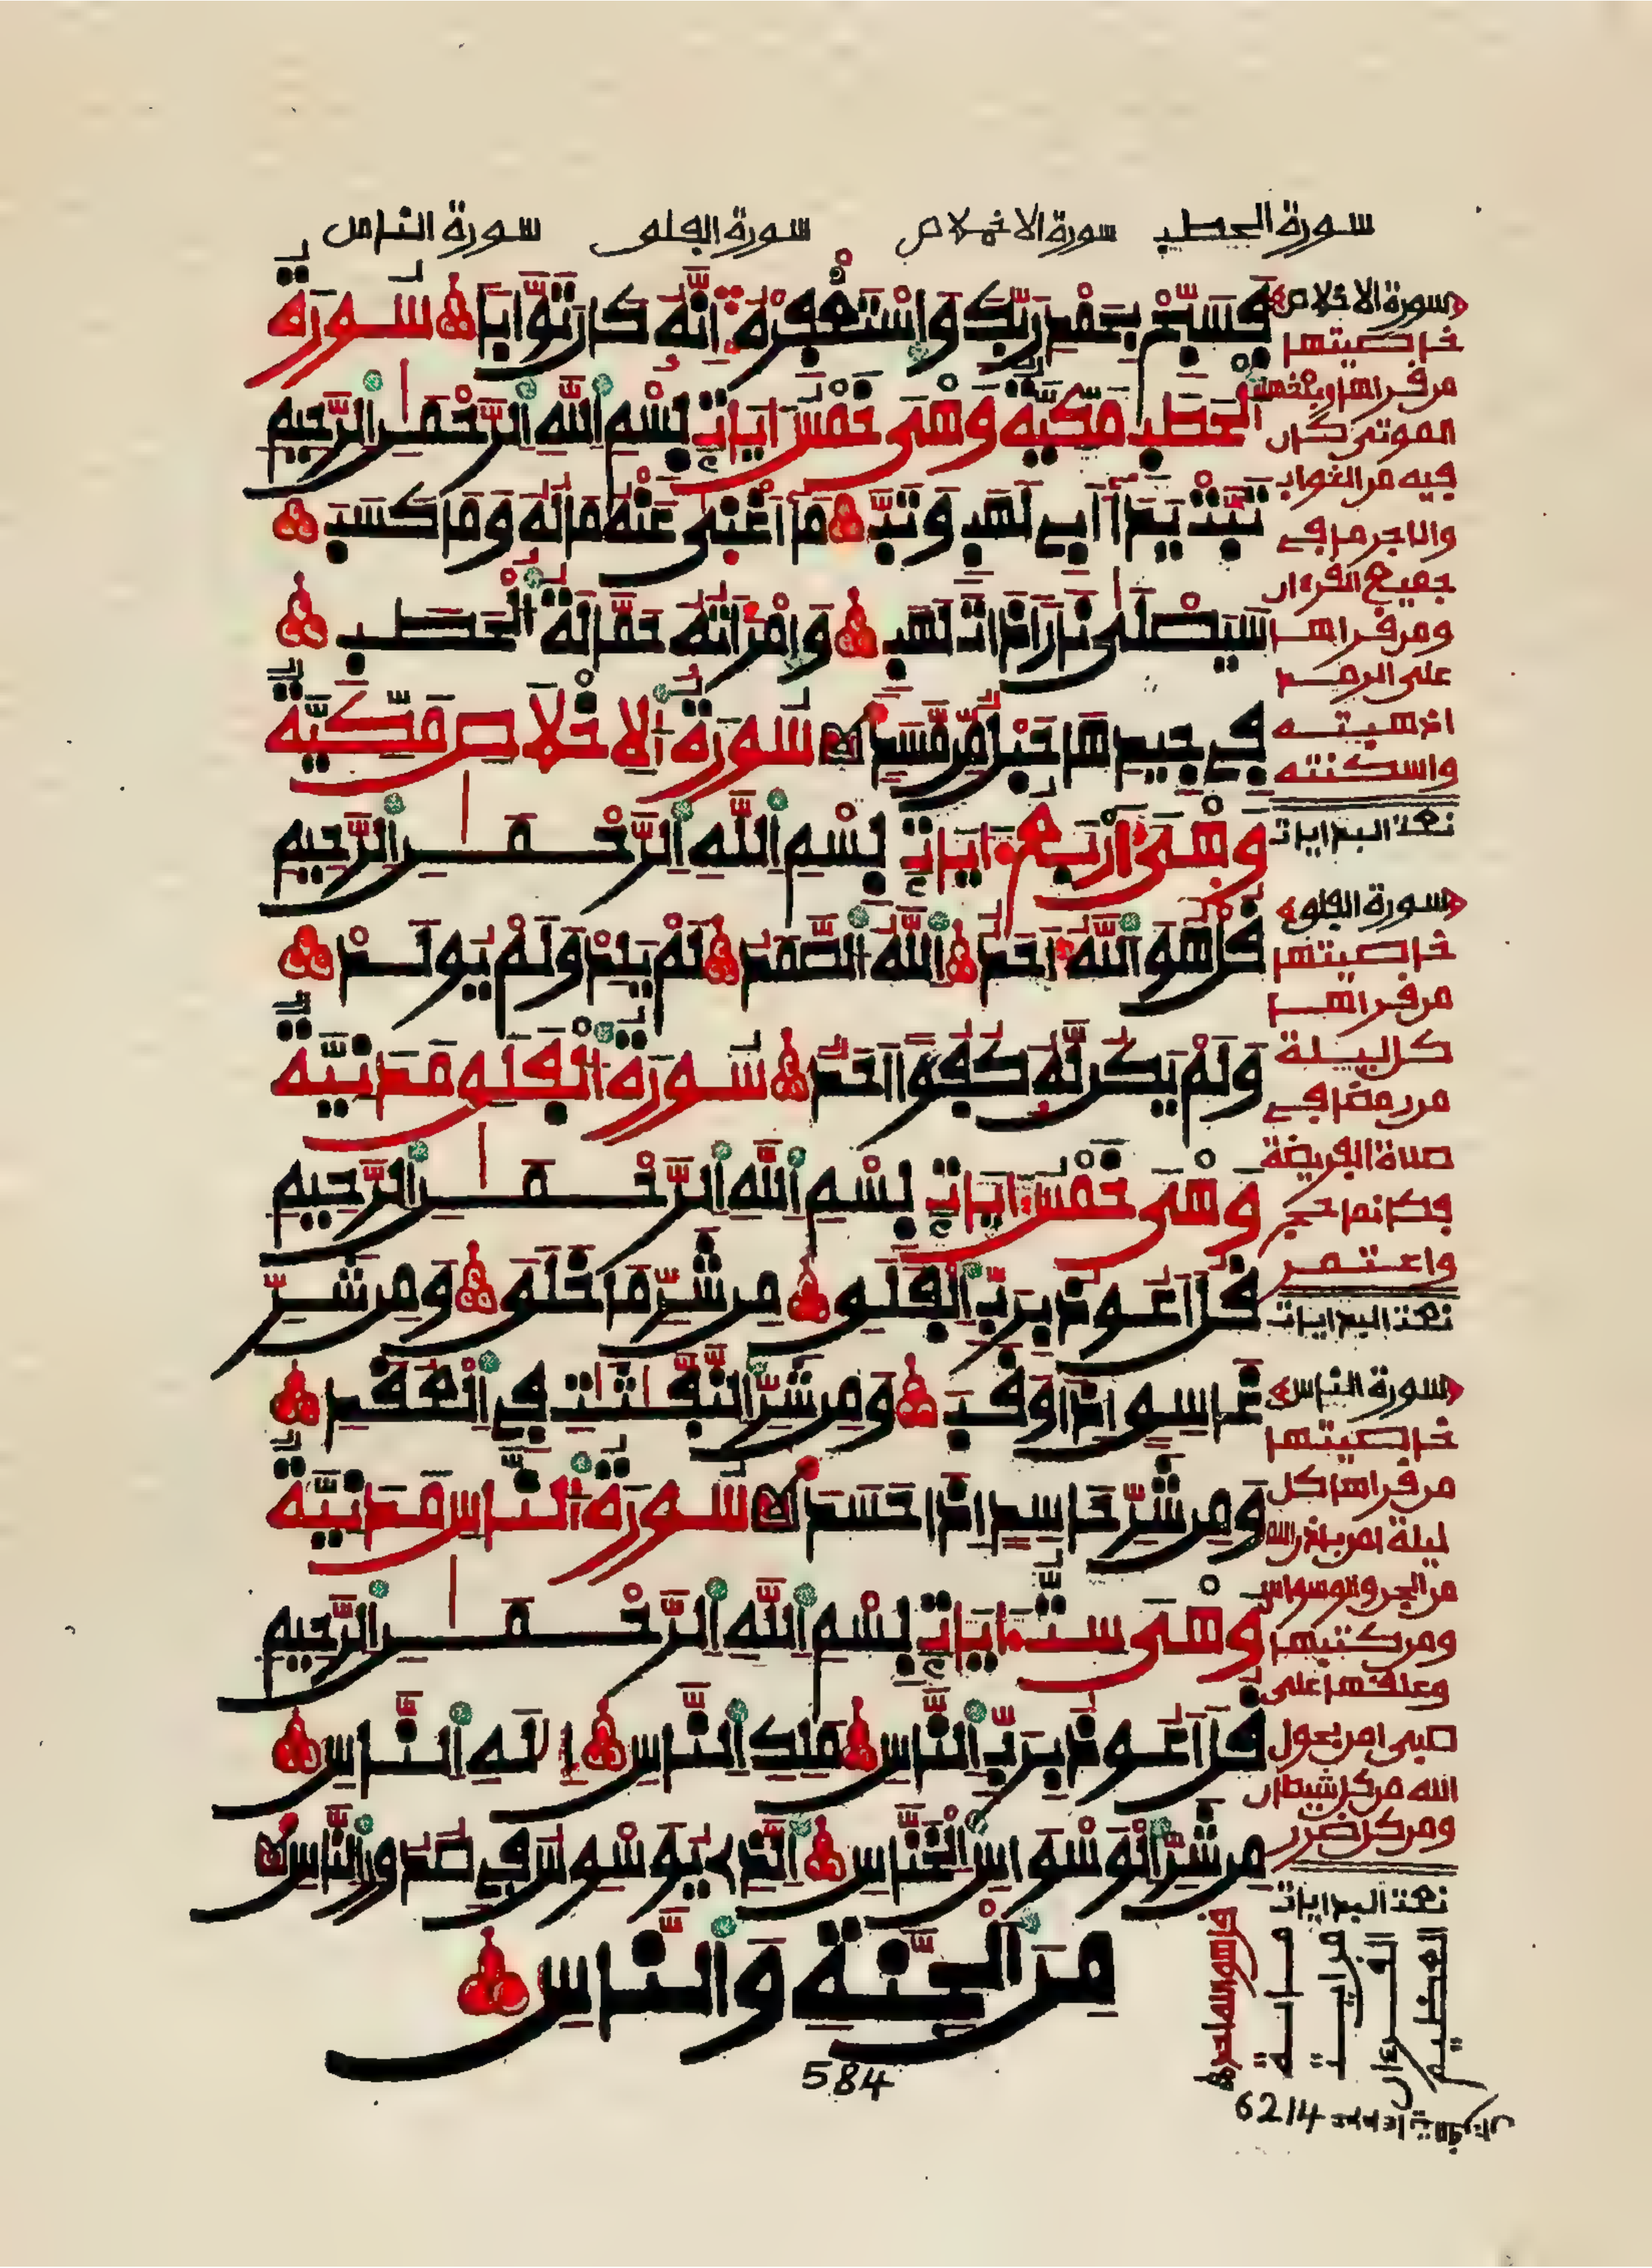 سورة الحطب سورة الاخلاص سورة الفلق سورة الناس
فَسَبِّحْ بِحَمْدِ رَبِّكَ وَاسْتَغْفِرْهُ إِنَّهُ كَانَ تَوَّابًا سُورَةُ
الْحَطَبِ مَكِّيَّةٌ وَهْيَ خَمْسُ ءَايَاتٍ بِسْمِ اللَّهِ الرَّحْمَٰنِ الرَّحِيمِ
تَبَّتْ يَدَا أَبِي لَهَبٍ وَتَبَّ مَا أَغْنَىٰ عَنْهُ مَالُهُ وَمَا كَسَبَ
سَيَصْلَىٰ نَارًا ذَاتَ لَهَبٍ وَامْرَأَتُهُ حَمَّالَةُ الْحَطَبِ
فِي جِيدِهَا حَبْلٌ مِّن مَّسَدٍ سُورَةُ الْإِخْلَاصِ مَكِّيَّةٌ
وَهْيَ أَرْبَعُ ءَايَاتٍ بِسْمِ اللَّهِ الرَّحْمَٰنِ الرَّحِيمِ
قُلْ هُوَ اللَّهُ أَحَدٌ اللَّهُ الصَّمَدُ لَمْ يَلِدْ وَلَمْ يُولَدْ
وَلَمْ يَكُن لَّهُ كُفُؤًا أَحَدٌ سُورَةُ الْفَلَقِ مَدَنِيَّةٌ
وَهْيَ خَمْسُ ءَايَاتٍ بِسْمِ اللَّهِ الرَّحْمَٰنِ الرَّحِيمِ
قُلْ أَعُوذُ بِرَبِّ الْفَلَقِ مِن شَرِّ مَا خَلَقَ وَمِن شَرِّ
غَاسِقٍ إِذَا وَقَبَ وَمِن شَرِّ النَّفَّٰثَٰتِ فِي الْعُقَدِ
وَمِن شَرِّ حَاسِدٍ إِذَا حَسَدَ سُورَةُ النَّاسِ مَدَنِيَّةٌ
وَهْيَ سِتُّ ءَايَاتٍ بِسْمِ اللَّهِ الرَّحْمَٰنِ الرَّحِيمِ
قُلْ أَعُوذُ بِرَبِّ النَّاسِ مَلِكِ النَّاسِ إِلَٰهِ النَّاسِ
مِن شَرِّ الْوَسْوَاسِ الْخَنَّاسِ الَّذِي يُوَسْوِسُ فِي صُدُورِ النَّاسِ
مِنَ الْجِنَّةِ وَالنَّاسِ
584
سورة الاخلاص
خاصيتها
من قراها
الموتى كان
فيه من الثواب
والاجر ما في
جميع القرءان
ومن قراها
على الرمد
اذهبته
واسكنته
نعت البدايات
سورة الفلق
خاصيتها
من قراها
كل ليلة
من رمضان في
صلاة الفريضة
فكانما حج
واعتمر
نعت البدايات
سورة الناس
خاصيتها
من قراها كل
ليلة امن باذن الله
من الجن والوسواس
ومن كتبها
وعلقها على
صبي امن بحول
الله من كل شيطان
ومن كل ضرر
نعت البدايات
العظيم
القرءان
قل هو الله احد
6214